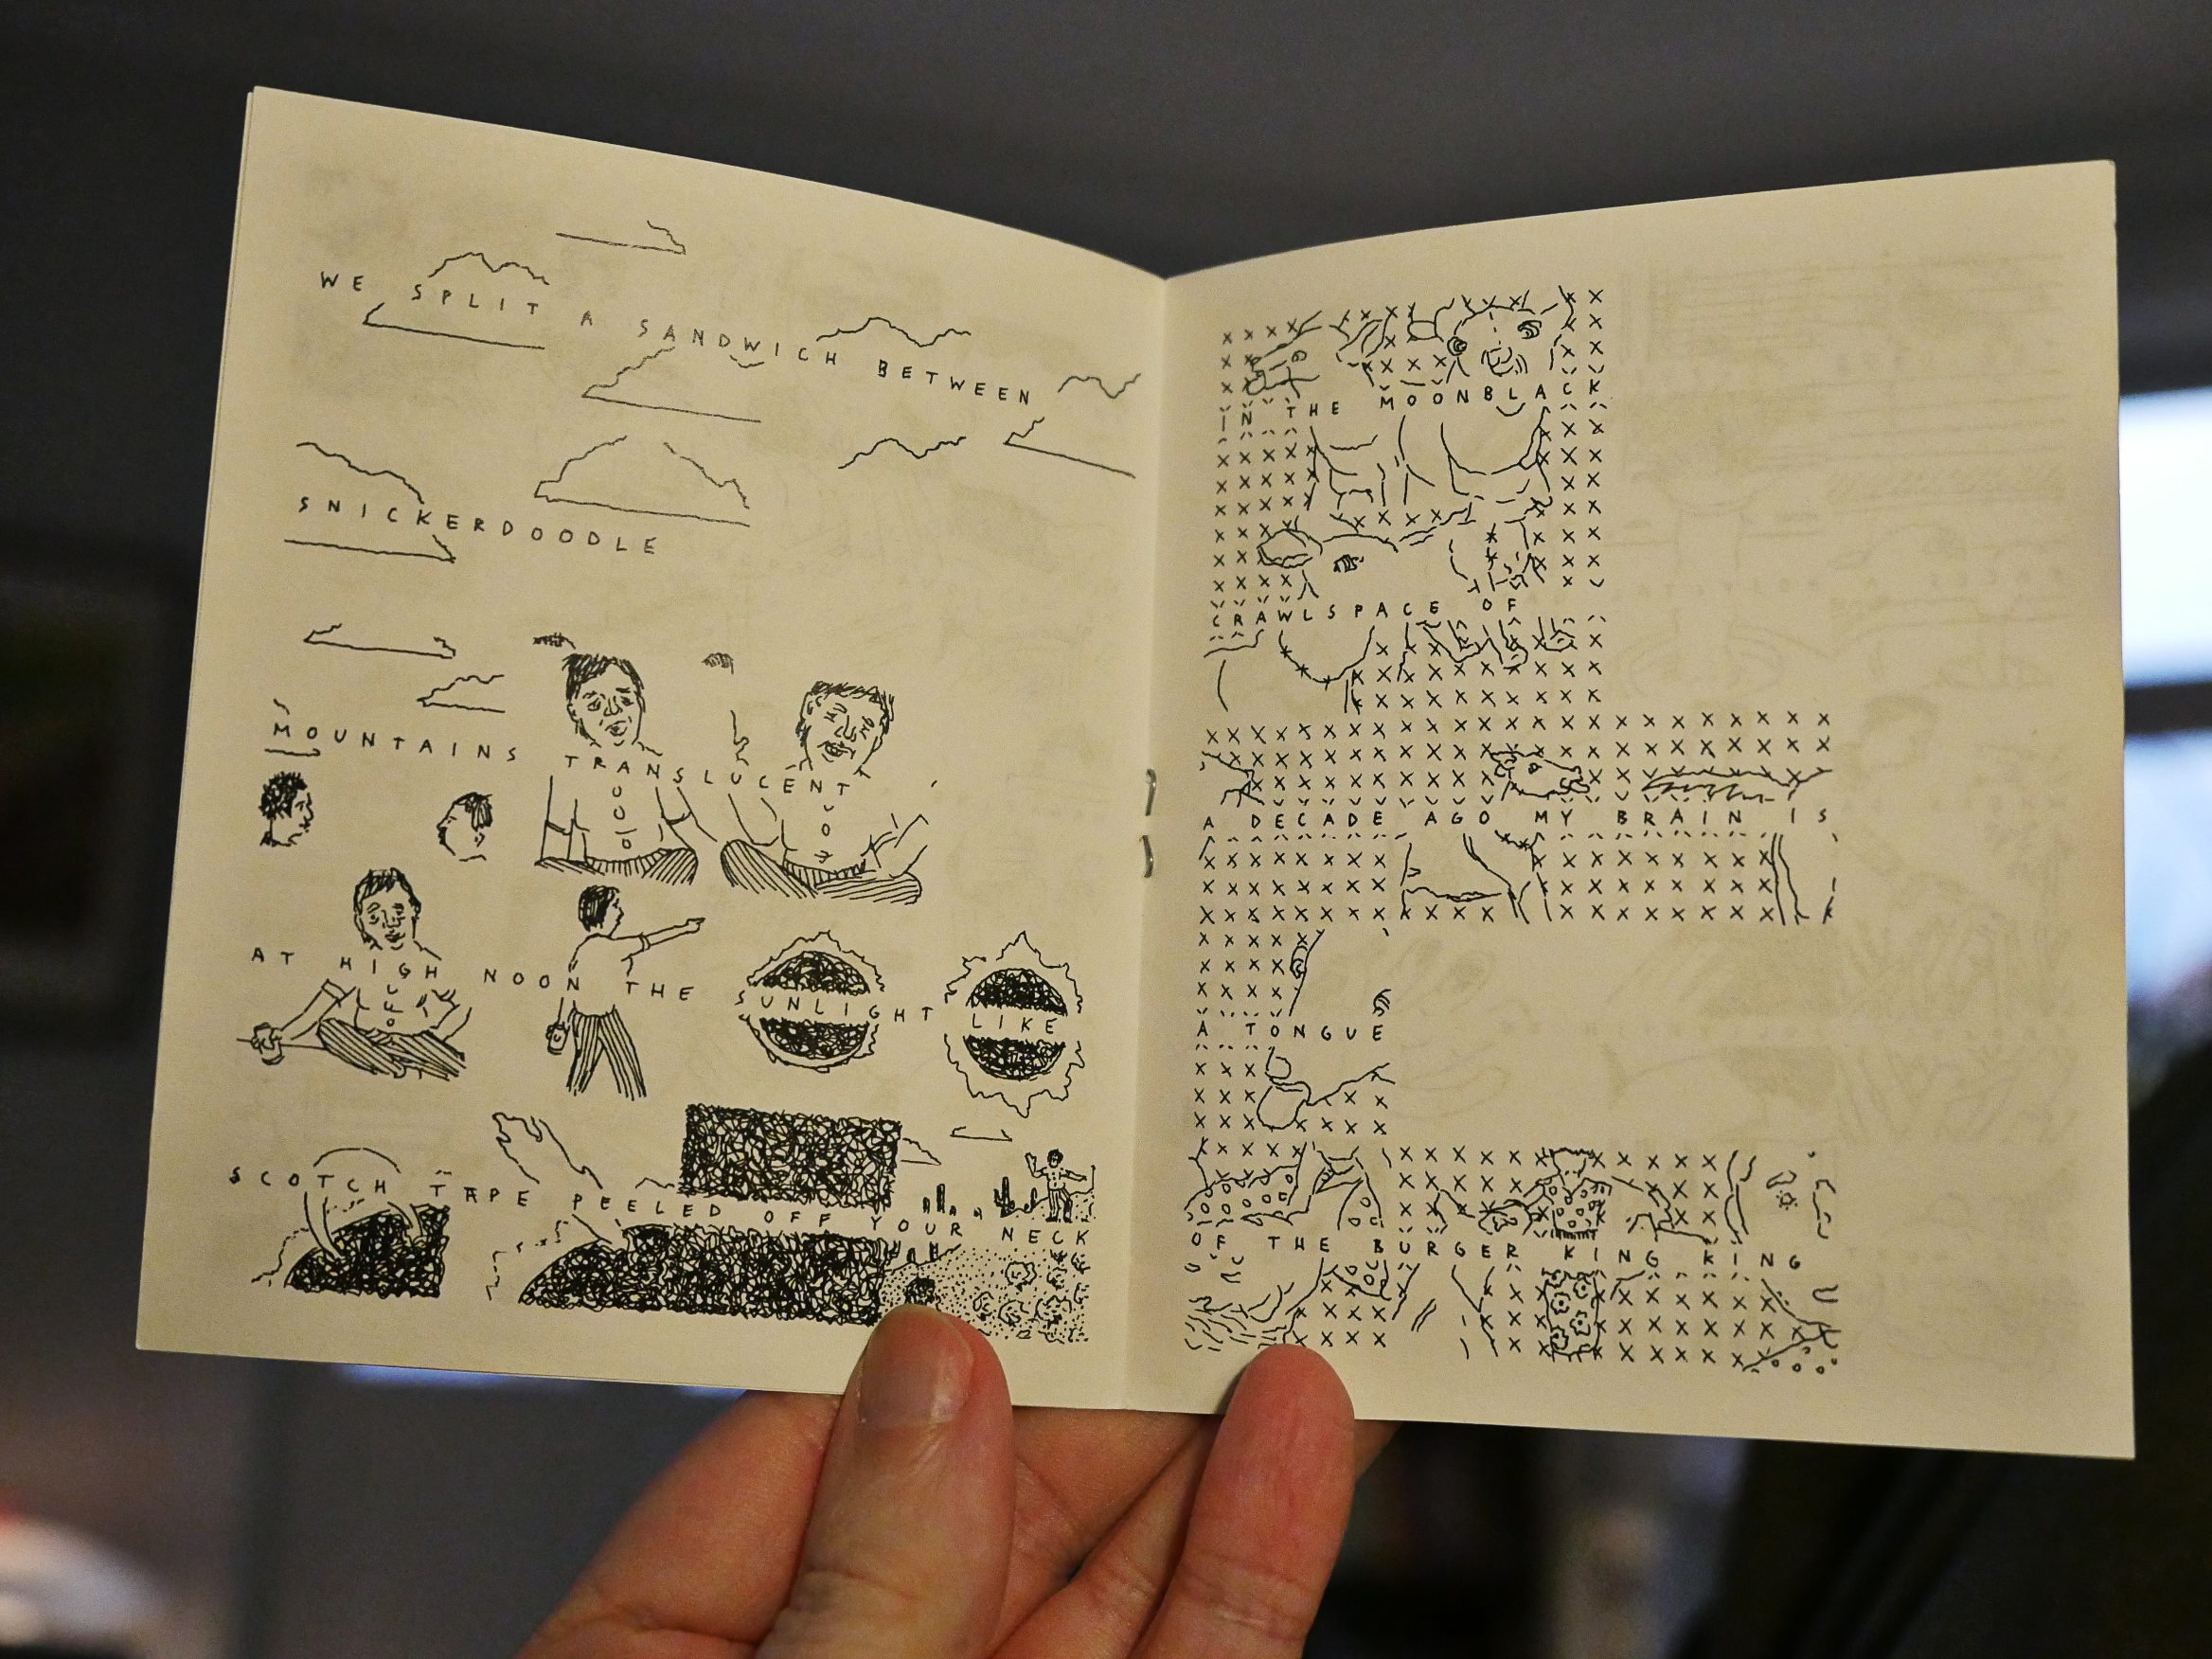 WE SPLIT A SANDWICH BETWEEN
SNICKERDOODLE
MOUNTAINS TRANSLUCENT
AT HIGH NOON THE SUNLIGHT LIKE
SCOTCH TAPE PEELED OFF YOUR NECK
IN THE MOONBLACK
CRAWLSPACE OF
A DECADE AGO MY BRAIN IS
A TONGUE
OF THE BURGER KING KING